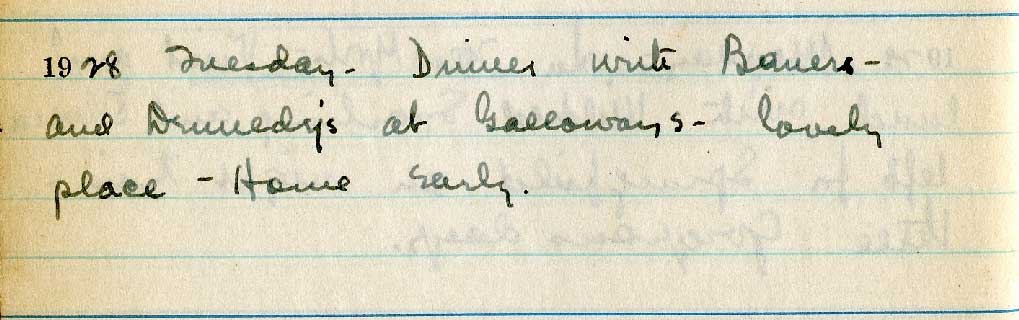 1928 Tuesday - Dinner with Bauers -
and at Galloways - lovely
place - Home early.